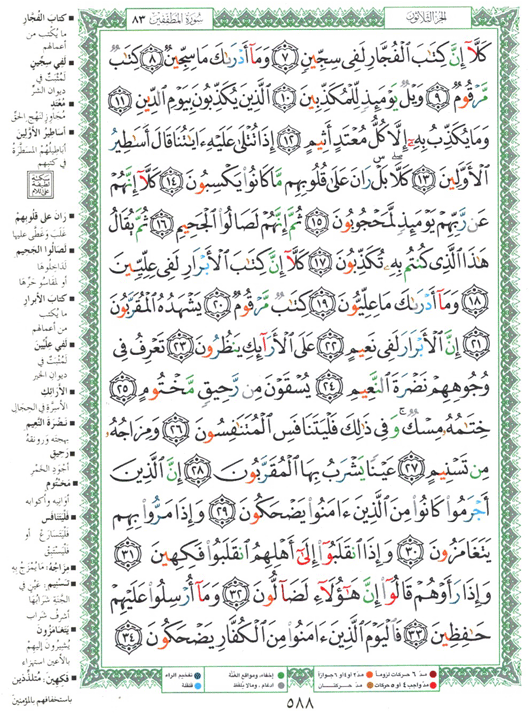 الجزء الثلاثون
سورة المطففين ٨٣
كَلَّآ إِنَّ كِتَٰبَ ٱلْفُجَّارِ لَفِى سِجِّينٍ ٧ وَمَآ أَدْرَىٰكَ مَا سِجِّينٌ ٨ كِتَٰبٌ
مَّرْقُومٌ ٩ وَيْلٌ يَوْمَئِذٍ لِّلْمُكَذِّبِينَ ١٠ ٱلَّذِينَ يُكَذِّبُونَ بِيَوْمِ ٱلدِّينِ ١١
وَمَا يُكَذِّبُ بِهِۦٓ إِلَّا كُلُّ مُعْتَدٍ أَثِيمٍ ١٢ إِذَا تُتْلَىٰ عَلَيْهِ ءَايَٰتُنَا قَالَ أَسَٰطِيرُ
ٱلْأَوَّلِينَ ١٣ كَلَّا ۖ بَلْ ۜ رَانَ عَلَىٰ قُلُوبِهِم مَّا كَانُوا۟ يَكْسِبُونَ ١٤ كَلَّآ إِنَّهُمْ
عَن رَّبِّهِمْ يَوْمَئِذٍ لَّمَحْجُوبُونَ ١٥ ثُمَّ إِنَّهُمْ لَصَالُوا۟ ٱلْجَحِيمِ ١٦ ثُمَّ يُقَالُ
هَٰذَا ٱلَّذِى كُنتُم بِهِۦ تُكَذِّبُونَ ١٧ كَلَّآ إِنَّ كِتَٰبَ ٱلْأَبْرَارِ لَفِى عِلِّيِّينَ
١٨ وَمَآ أَدْرَىٰكَ مَا عِلِّيُّونَ ١٩ كِتَٰبٌ مَّرْقُومٌ ٢٠ يَشْهَدُهُ ٱلْمُقَرَّبُونَ
٢١ إِنَّ ٱلْأَبْرَارَ لَفِى نَعِيمٍ ٢٢ عَلَى ٱلْأَرَآئِكِ يَنظُرُونَ ٢٣ تَعْرِفُ فِى
وُجُوهِهِمْ نَضْرَةَ ٱلنَّعِيمِ ٢٤ يُسْقَوْنَ مِن رَّحِيقٍ مَّخْتُومٍ ٢٥
خِتَٰمُهُۥ مِسْكٌ ۚ وَفِى ذَٰلِكَ فَلْيَتَنَافَسِ ٱلْمُتَنَٰفِسُونَ ٢٦ وَمِزَاجُهُۥ
مِن تَسْنِيمٍ ٢٧ عَيْنًا يَشْرَبُ بِهَا ٱلْمُقَرَّبُونَ ٢٨ إِنَّ ٱلَّذِينَ
أَجْرَمُوا۟ كَانُوا۟ مِنَ ٱلَّذِينَ ءَامَنُوا۟ يَضْحَكُونَ ٢٩ وَإِذَا مَرُّوا۟ بِهِمْ
يَتَغَامَزُونَ ٣٠ وَإِذَا ٱنقَلَبُوٓا۟ إِلَىٰٓ أَهْلِهِمُ ٱنقَلَبُوا۟ فَكِهِينَ ٣١
وَإِذَا رَأَوْهُمْ قَالُوٓا۟ إِنَّ هَٰٓؤُلَآءِ لَضَآلُّونَ ٣٢ وَمَآ أُرْسِلُوا۟ عَلَيْهِمْ
حَٰفِظِينَ ٣٣ فَٱلْيَوْمَ ٱلَّذِينَ ءَامَنُوا۟ مِنَ ٱلْكُفَّارِ يَضْحَكُونَ ٣٤
كتاب الفجار
ما يكتب من
أعمالهم
لفي سجين
لمثبت في
ديوان الشر
معتد
متجاوز لنهج الحق
أساطير الأولين
أباطيلهم المسطرة
في كتبهم
سكتة
لطيفة
على اللام
ران على قلوبهم
غلب وغطى عليها
لصالوا الجحيم
لداخلوها
أو لمقاسو حرها
كتاب الأبرار
ما يكتب
من أعمالهم
لفي عليين
لمثبت في
ديوان الخير
الأرائك
الأسرة في الحجال
نضرة النعيم
بهجته ورونقه
رحيق
أجود الخمر
مختوم
أوانيه وأكوابه
فليتنافس
فليتسارع أو
فليستبق
مزاجه: ما يمزج به
تسنيم: عين في
الجنة شرابها
أشرف شراب
يتغامزون
يشيرون إليهم
بالأعين استهزاء
فكهين: متلذذين
باستخفافهم بالمؤمنين
مد ٦ حركات لزوماً مد ٢ أو ٤ أو ٦ جوازاً إخفاء، ومواقع الغنة تفخيم الراء
مد واجب ٤ أو ٥ حركات مد حركتان إدغام، وما لا يلفظ قلقلة
٥٨٨